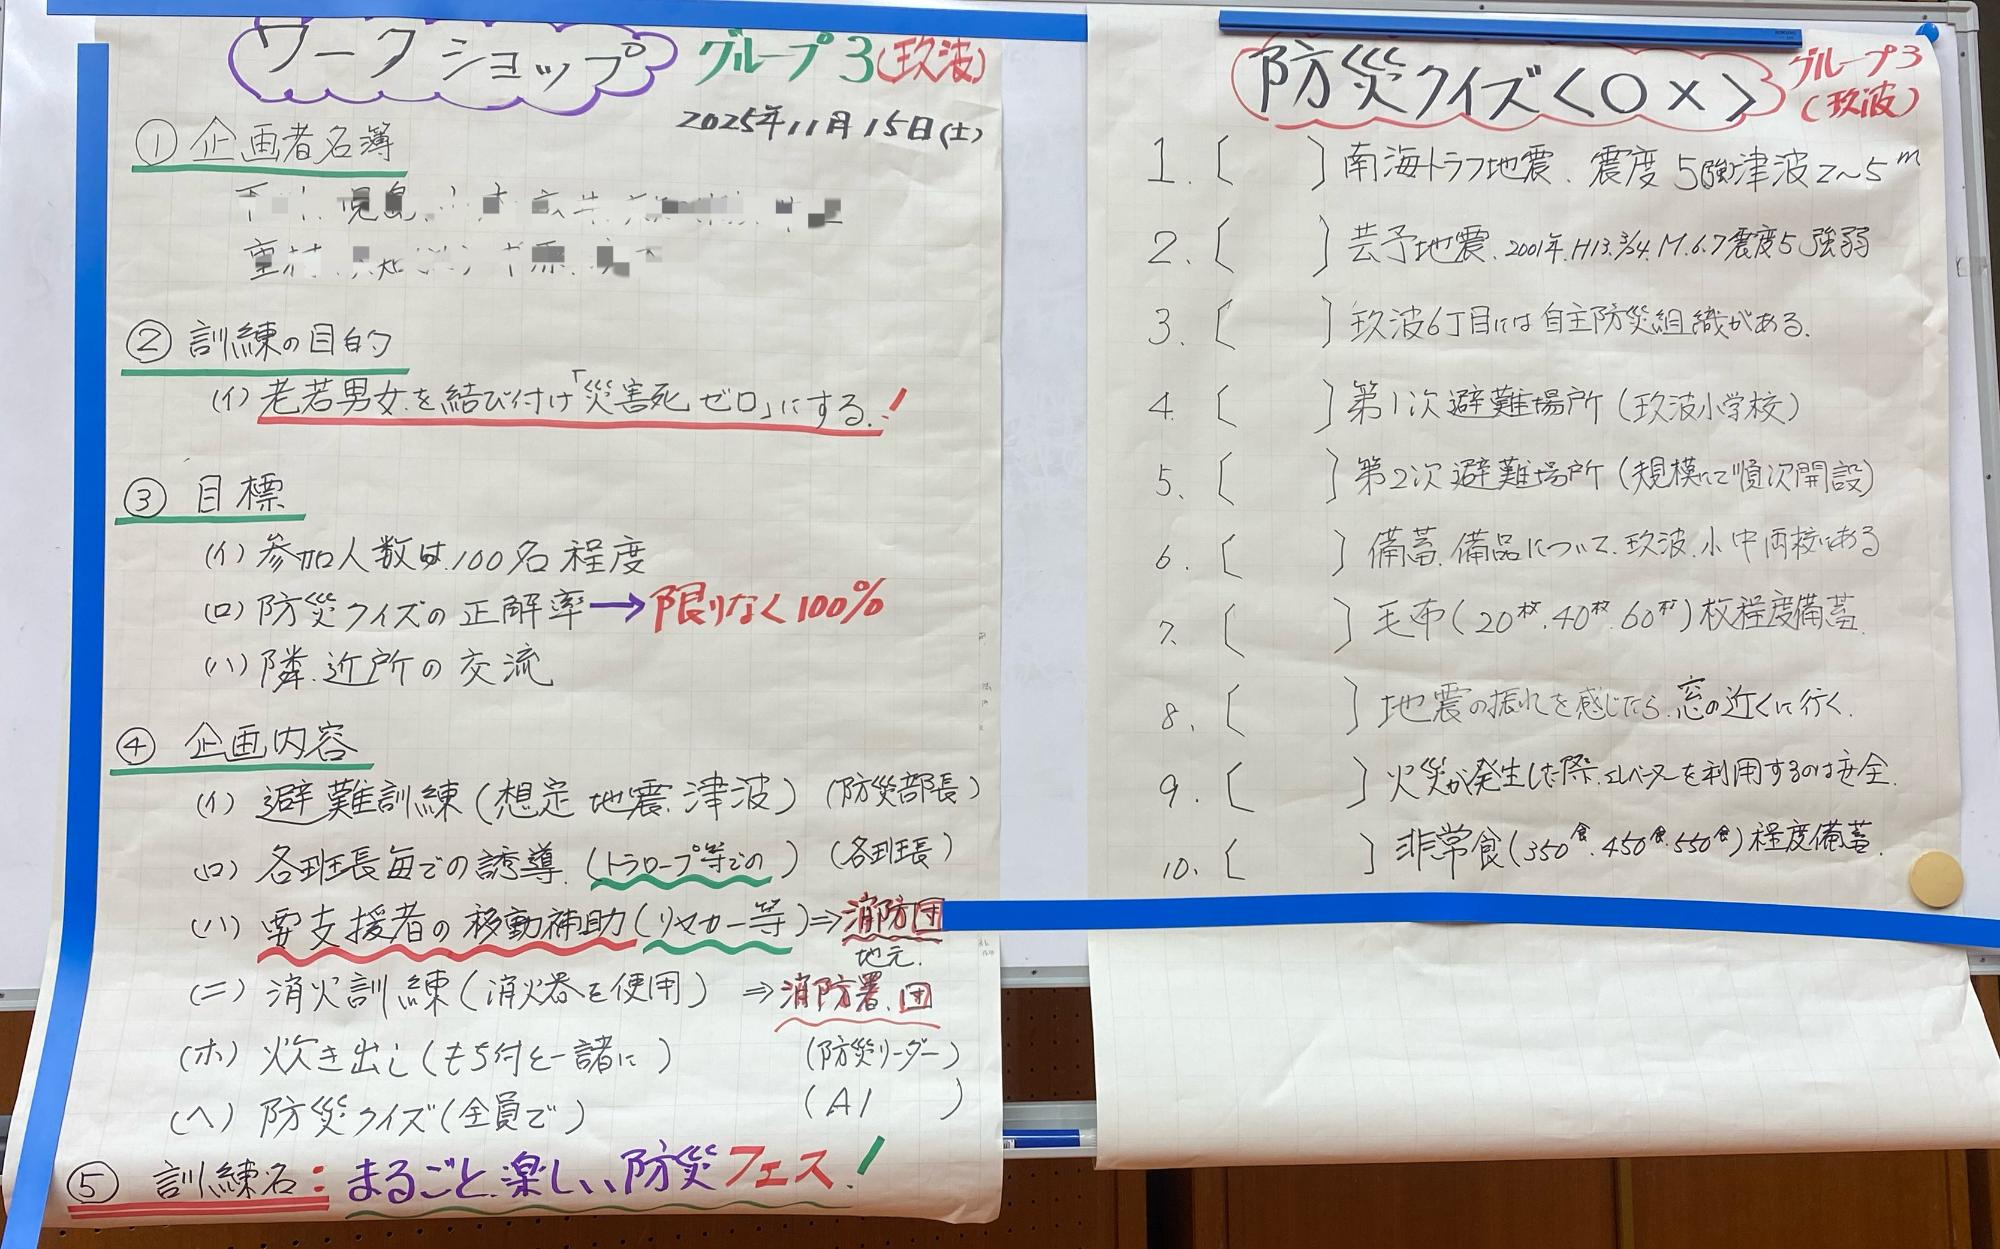 ワークショップ グループ3(玖波)
2025年11月15日(土)
① 企画者名簿
② 訓練の目的
(イ) 老若男女を結び付け「災害死ゼロ」にする!
③ 目標
(イ) 参加人数は100名程度
(ロ) 防災クイズの正解率→限りなく100%
(ハ) 隣近所の交流
④ 企画内容
(イ) 避難訓練(想定 地震.津波) (防災部長)
(ロ) 各班長毎での誘導.(トラロープ等での) (各班長)
(ハ) 要支援者の移動補助(リヤカー等)⇒消防団
地元.
(ニ) 消火訓練(消火器を使用) ⇒消防署.団
(ホ) 炊き出し(もち付と一諸に) (防災リーダー)
(ヘ) 防災クイズ(全員で) (AI )
⑤ 訓練名:まるごと.楽しい防災フェス!
防災クイズ<○×> グループ3
(玖波)
1. [ ] 南海トラフ地震.震度5強津波2~5m
2. [ ] 芸予地震.2001年.H13.3/24.M.6.7震度5強弱
3. [ ] 玖波6丁目には自主防災組織がある.
4. [ ] 第1次避難場所(玖波小学校)
5. [ ] 第2次避難場所(規模にて順次開設)
6. [ ] 備蓄.備品について.玖波.小中両校にある
7. [ ] 毛布(20枚.40枚.60枚)枚程度備蓄.
8. [ ] 地震の振れを感じたら.窓の近くに行く.
9. [ ] 火災が発生した際.エレベーターを利用するのは安全.
10. [ ] 非常食(350食.450食.550食)程度備蓄.